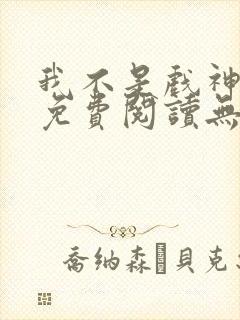 我不是戲神
免費閱讀無
喬納森 貝克